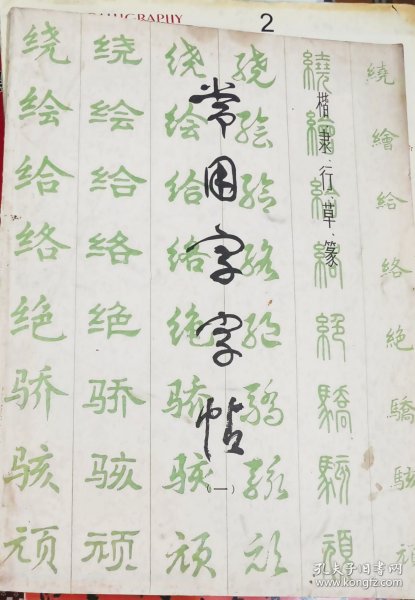 CALLIGRAPHY
2
楷、隶、行、草、篆
常用字字帖
（一）
绕 绕 绕 绕 繞 繞
绘 绘 绘 绘 繪 繪
给 给 给 给 給 給
络 络 络 络 絡 絡
绝 绝 绝 绝 絕 絶
骄 骄 骄 骄 驕 驕
骇 骇 骇 骇 駭 駭
顽 顽 顽 顽 頑 頑
孔夫子旧书网
www.kongfz.com